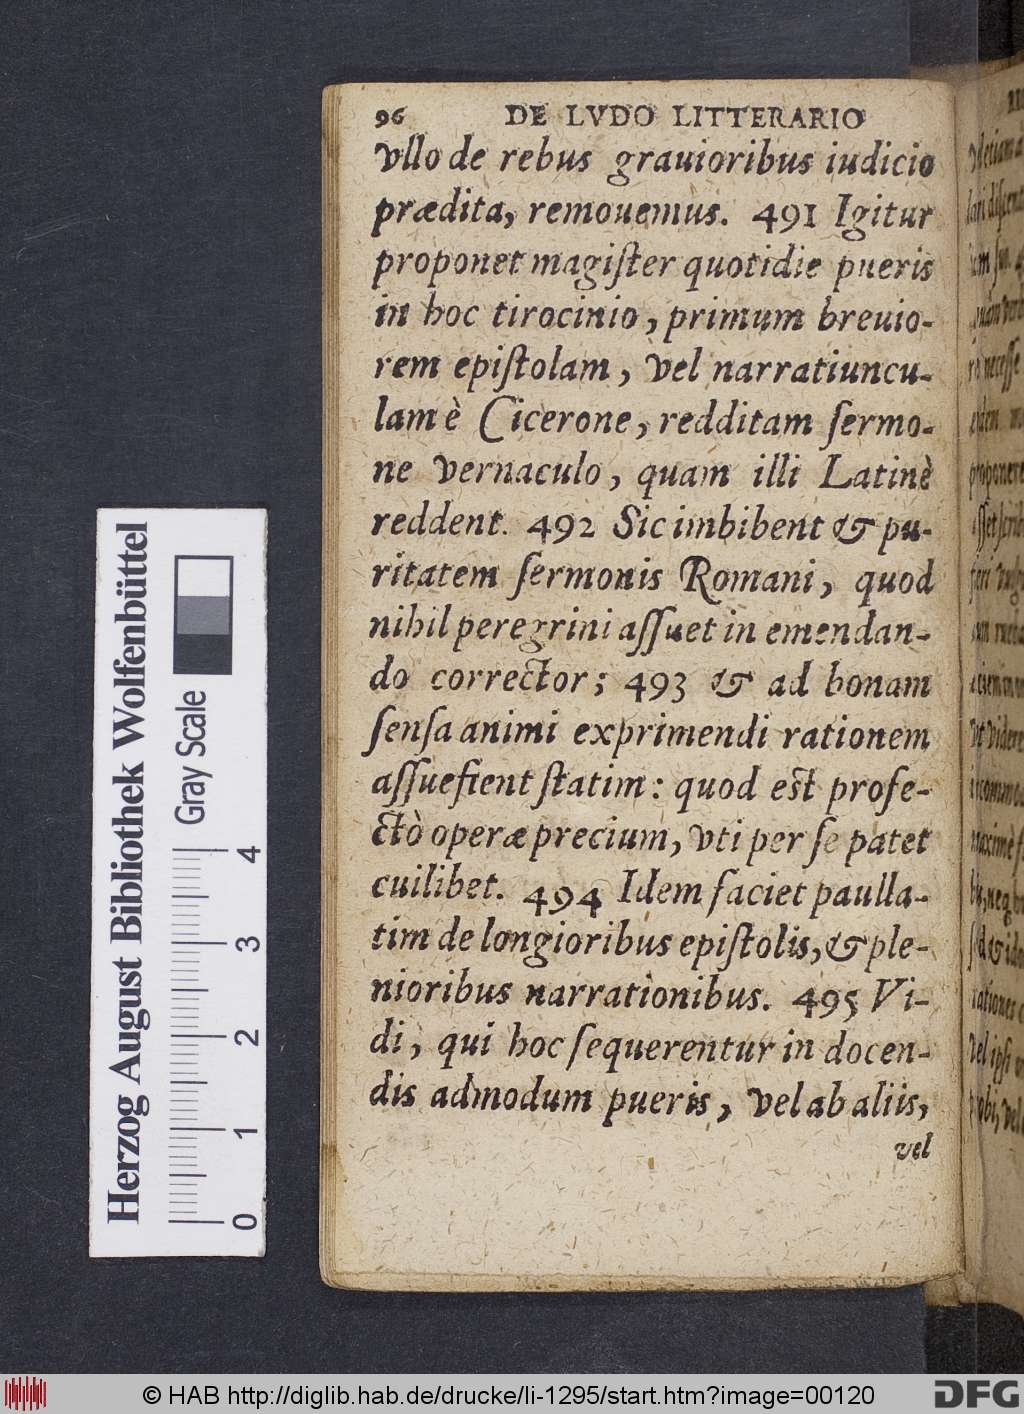 96 DE LVDO LITTERARIO
vllo de rebus grauioribus iudicio
prædita, remouemus. 491 Igitur
proponet magiſter quotidie pueris
in hoc tirocinio, primum breuio-
rem epiſtolam, vel narratiuncu-
lam è Cicerone, redditam ſermo-
ne vernaculo, quam illi Latinè
reddent. 492 Sic imbibent & pu-
ritatem ſermonis Romani, quod
nihil peregrini aſſuet in emendan-
do corrector; 493 & ad bonam
ſenſa animi exprimendi rationem
aſſuefient ſtatim: quod eſt profe-
ctò operæ precium, vti per ſe patet
cuilibet. 494 Idem faciet paulla-
tim de longioribus epiſtolis, & ple-
nioribus narrationibus. 495 Vi-
di, qui hoc ſequerentur in docen-
dis admodum pueris, vel ab aliis,
vel
Herzog August Bibliothek Wolfenbüttel
Gray Scale
0 1 2 3 4
© HAB http://diglib.hab.de/drucke/li-1295/start.htm?image=00120
DFG